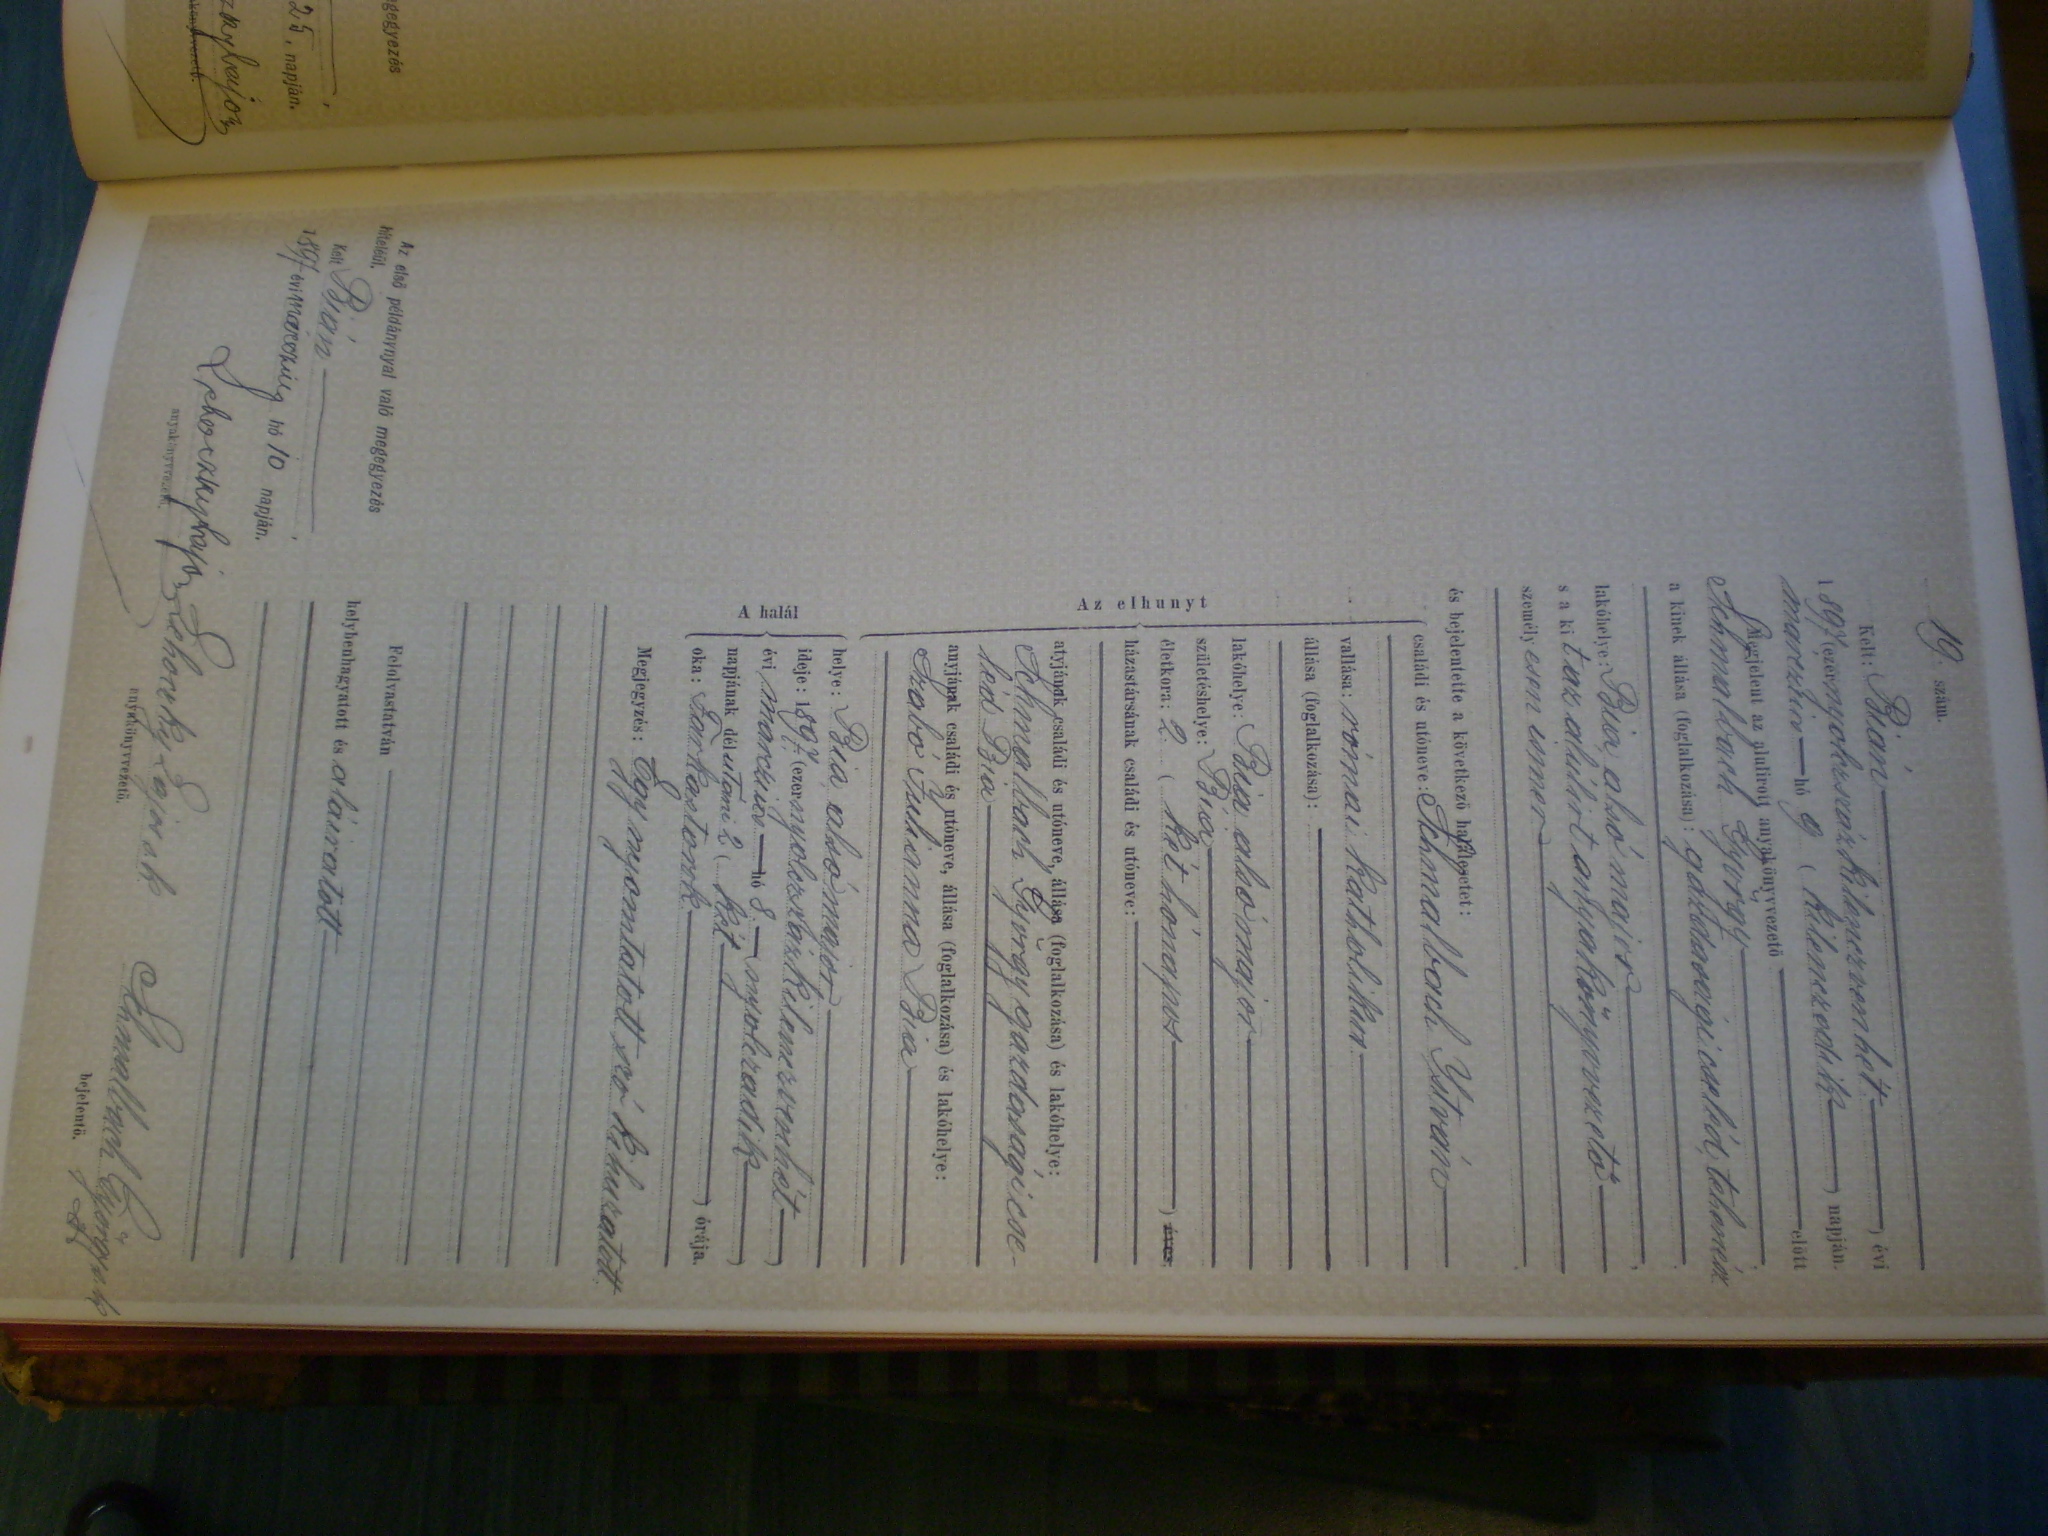 gegyezés
25, napján.
19. szám.
Kelt: Bián
1897 (ezernyolczszázkilenczvenhét) évi
marczius hó 9 (kilenczedik) napján.
Megjelent az alulirott anyakönyvvezető előtt
Schmalbach György
a kinek állása (foglalkozása): gazdasági cseléd,
lakóhelye: Bia alsó major
s a kit az alulirt anyakönyvvezető
személyesen ismer
és bejelentette a következő halálesetet:
Az elhunyt
családi és utóneve: Schmalbach István
vallása: római katholikus
állása (foglalkozása):
lakóhelye: Bia alsó major
születéshelye: Bia
életkora: 2 (két hónapos) éves.
házastársának családi és utóneve:
atyjának családi és utóneve, állása (foglalkozása) és lakóhelye:
Schmalbach György gazdasági cse-
léd Bia
anyjának családi és utóneve, állása (foglalkozása) és lakóhelye:
Szabó Juhanna Bia
A halál
helye: Bia alsó major
ideje: 1897 (ezernyolczszázkilenczvenhét)
évi marczius hó 8 nyolczadik
napjának délutáni 2 (két) órája.
oka: Farkastorok
Megjegyzés: Egy nyomtatott szó kihuzatott.
Felolvastatván
helybenhagyatott és aláiratott
Lehoczky Lajos s. k.
anyakönyvvezető.
Schmalbach György s. k.
bejelentő.
Az első példánynyal való megegyezés
hiteléül.
Kelt Bián,
1897 évi márczius hó 10 napján.
Lehoczky Lajos
anyakönyvvezető.